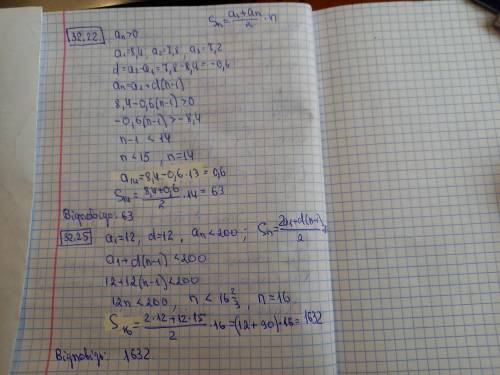 Sn = (a₁ + an)/2 · n
32.22. an > 0
a₁ = 8,4 a₂ = 7,8, a₃ = 7,2
d = a₂ - a₁ = 7,8 - 8,4 = -0,6
an = a₁ + d(n-1)
8,4 - 0,6(n-1) > 0
-0,6(n-1) > -8,4
n-1 < 14
n < 15, n = 14
a₁₄ = 8,4 - 0,6 · 13 = 0,6
S₁₄ = (8,4 + 0,6)/2 · 14 = 63
Відповідь: 63
32.25 a₁ = 12, d = 12, an < 200; Sn = (2a₁ + d(n-1))/2
a₁ + d(n-1) < 200
12 + 12(n-1) < 200
12n < 200, n < 16 2/3, n = 16
S₁₆ = (2·12 + 12·15)/2 · 16 = (12 + 90) · 16 = 1632
Відповідь: 1632